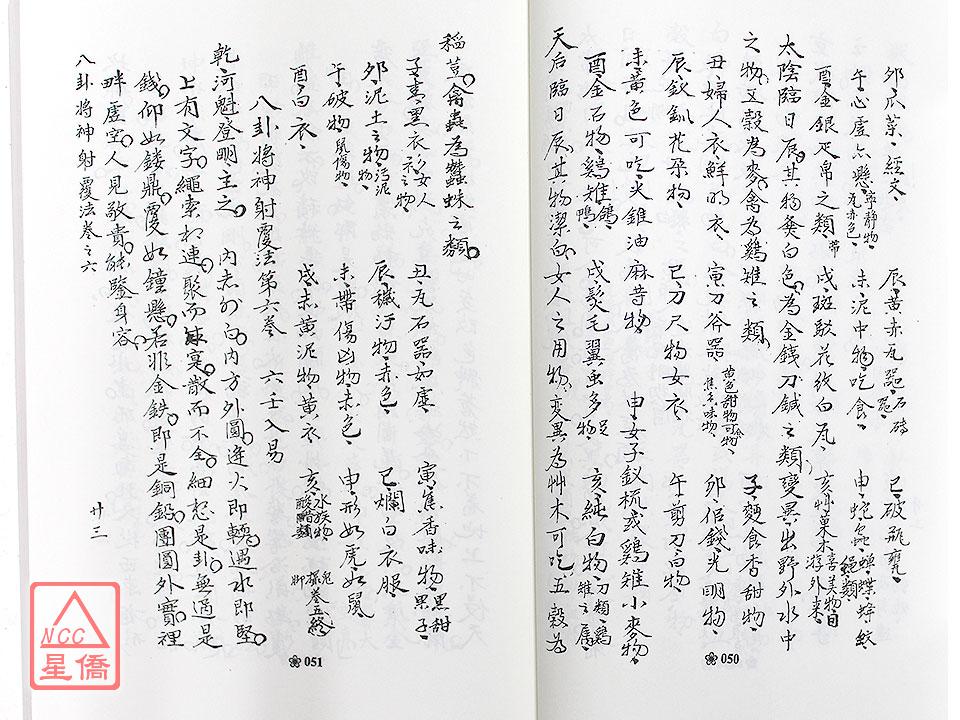 夘爪菜、經文、 辰、黃赤瓦器、石磚器、 巳、破瓶甕、
午心虛亦懸、寧靜物、瓦赤色、 未泥中物吃食、 申、蛇
酉金銀疋帛之類、帶 戌、斑駁花紙白瓦、 亥艸菓木、善美物自游外來、
太陰臨日辰、其物養白色、為金錢刀鍼之類、變異出野外水中
之物、五穀為麥、禽為鷄雉之類、 子、麵食香甜物、
丑婦人衣鮮明衣、 寅刀斧器、黃色甜物可吃、焦气味物、 卯、侶錢光明物、
辰釵釧花朶物 巳刀尺物女衣、 午剪刀白物、
未黃色可吃火錐油麻苦物、 申、女子釵梳或鷄雉小麥物、
酉金石物鷄雉鴿鴨、 戌髮毛翼虫多足物、 亥純白物、刀類鷄雉之屬、
天后臨日辰其物潔白、女人之用物、變異為艸木可吃五穀為
❀ 050
稻荳、禽蟲為蠶蛛之類、
子青黑衣衫女人衣之物、 丑、瓦石器如虛、 寅焦香味物、黑甜菓子、
夘泥土之物、污泥物、 辰穢汙物、赤色、 巳爛白衣服、
午破物鼠傷物、 未帶傷凶物、赤色、 申形如虎如鼠、
酉白衣、 戌赤黃泥物黃衣、 亥、水族物酸醋類、
八卦将神射覆法第六卷 六壬入易
乾河魁登明主之、 內赤外白、內方外圓逢火即轉遇水即堅、
上有文字、繩索相連、聚而寞散而不全、細恕是卦、無過是
錢、仰如鏤鼎、覆如鐘懸、若非金鉄、即是銅鉛、團圓外實、裡
畔虛空、人見敬貴、能鑒身容、
八卦将神射覆法卷之六 廿三
❀ 051
NCC
星僑